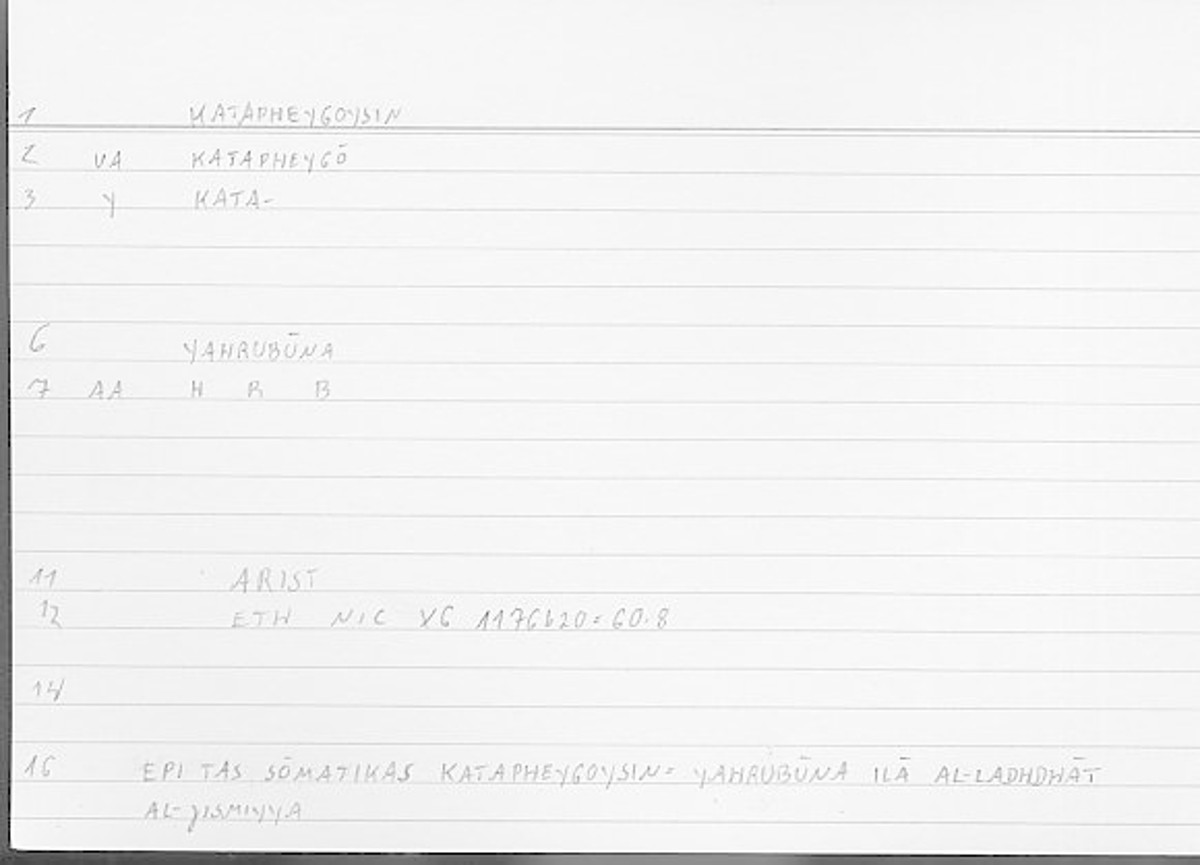 1 KATAPHEYGOYSIN
2 VA KATAPHEYGŌ
3 Y KATA-
6 YAHRUBŪNA
7 AA H R B
11 ARIST
12 ETH NIC X6 1176b20=60.8
14
16 EPI TAS SŌMATIKAS KATAPHEYGOYSIN= YAHRUBŪNA ILĀ AL-LADHDHĀT
AL-JISMIYYA